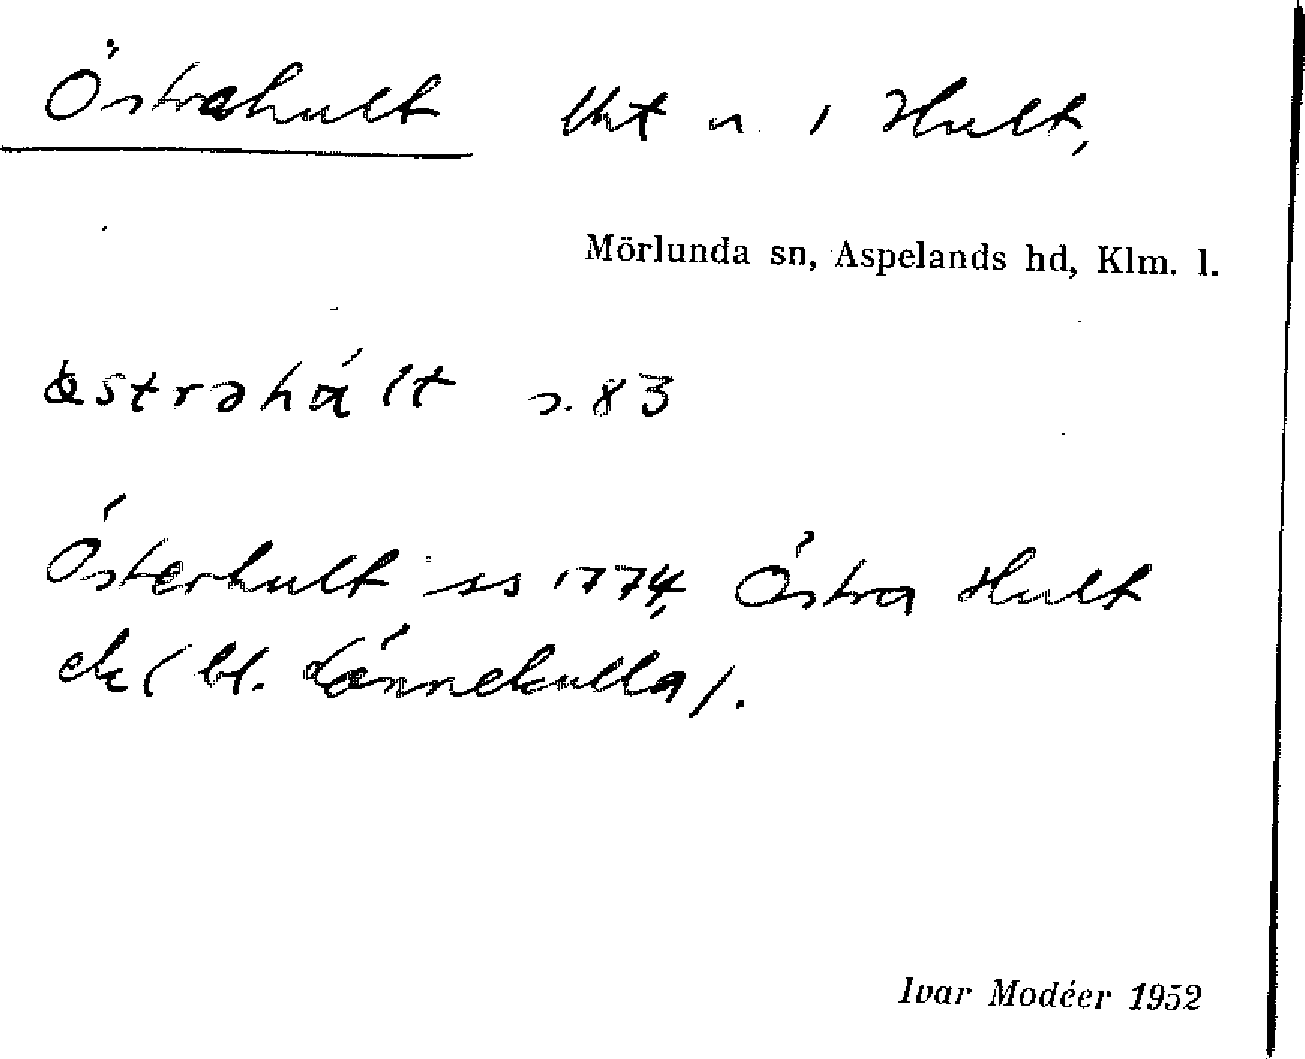 Östrahult lht n. 1 Hult,
Mörlunda sn, Aspelands hd, Klm. l.
s. 83
Österhult ss 1774, Östra Hult
ek (bl. Lönnekulla).
Ivar Modéer 1952